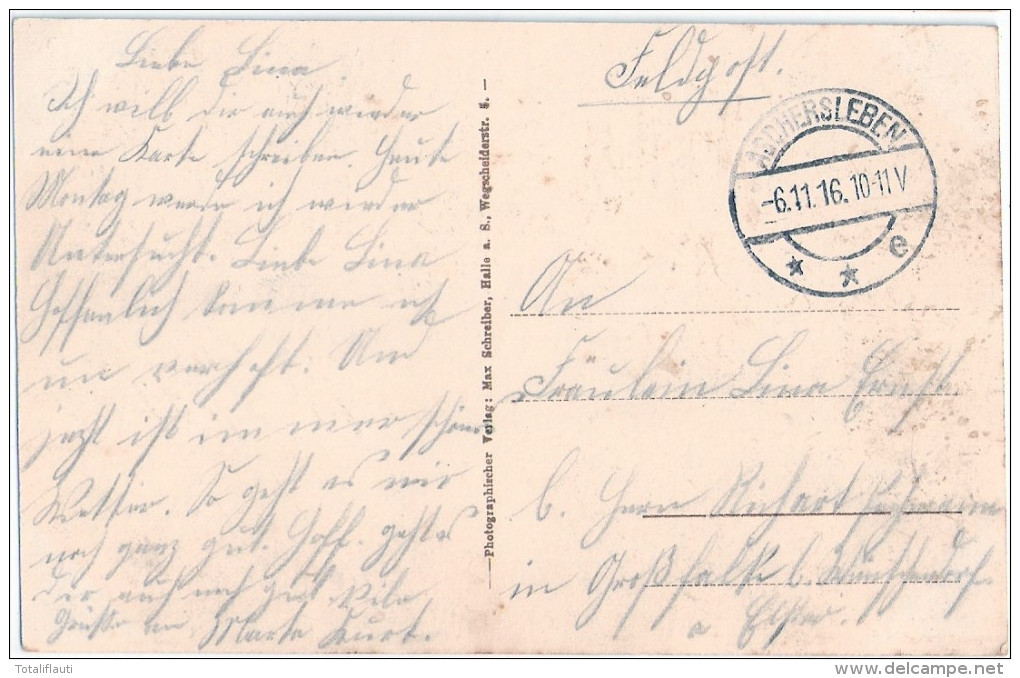 Liebe Lina
Ich will dir auch wieder
eine Karte schreiben. Heute
Montag werde ich wieder
Untersucht. Liebe Lina
Hoffenlich komme ich
un verhoft. Und
jezt ist im mer schöne
Wetter. So geht es mir
noch ganz gut. Hoff. gehts
dir auch noch gut Viele
Grüße an Marta Kurt.
Photographischer Verlag: Max Schreiber, Halle a. S., Wegscheiderstr. 4.
Feldpost.
ASCHERSLEBEN
-6.11.16.10-11V
* * e
An
Fräulein Lina Ernst
b. Herrn Richart
in Großfalke b. Wünschendorf
a Elster.
Totaliflauti
www.delcampe.net